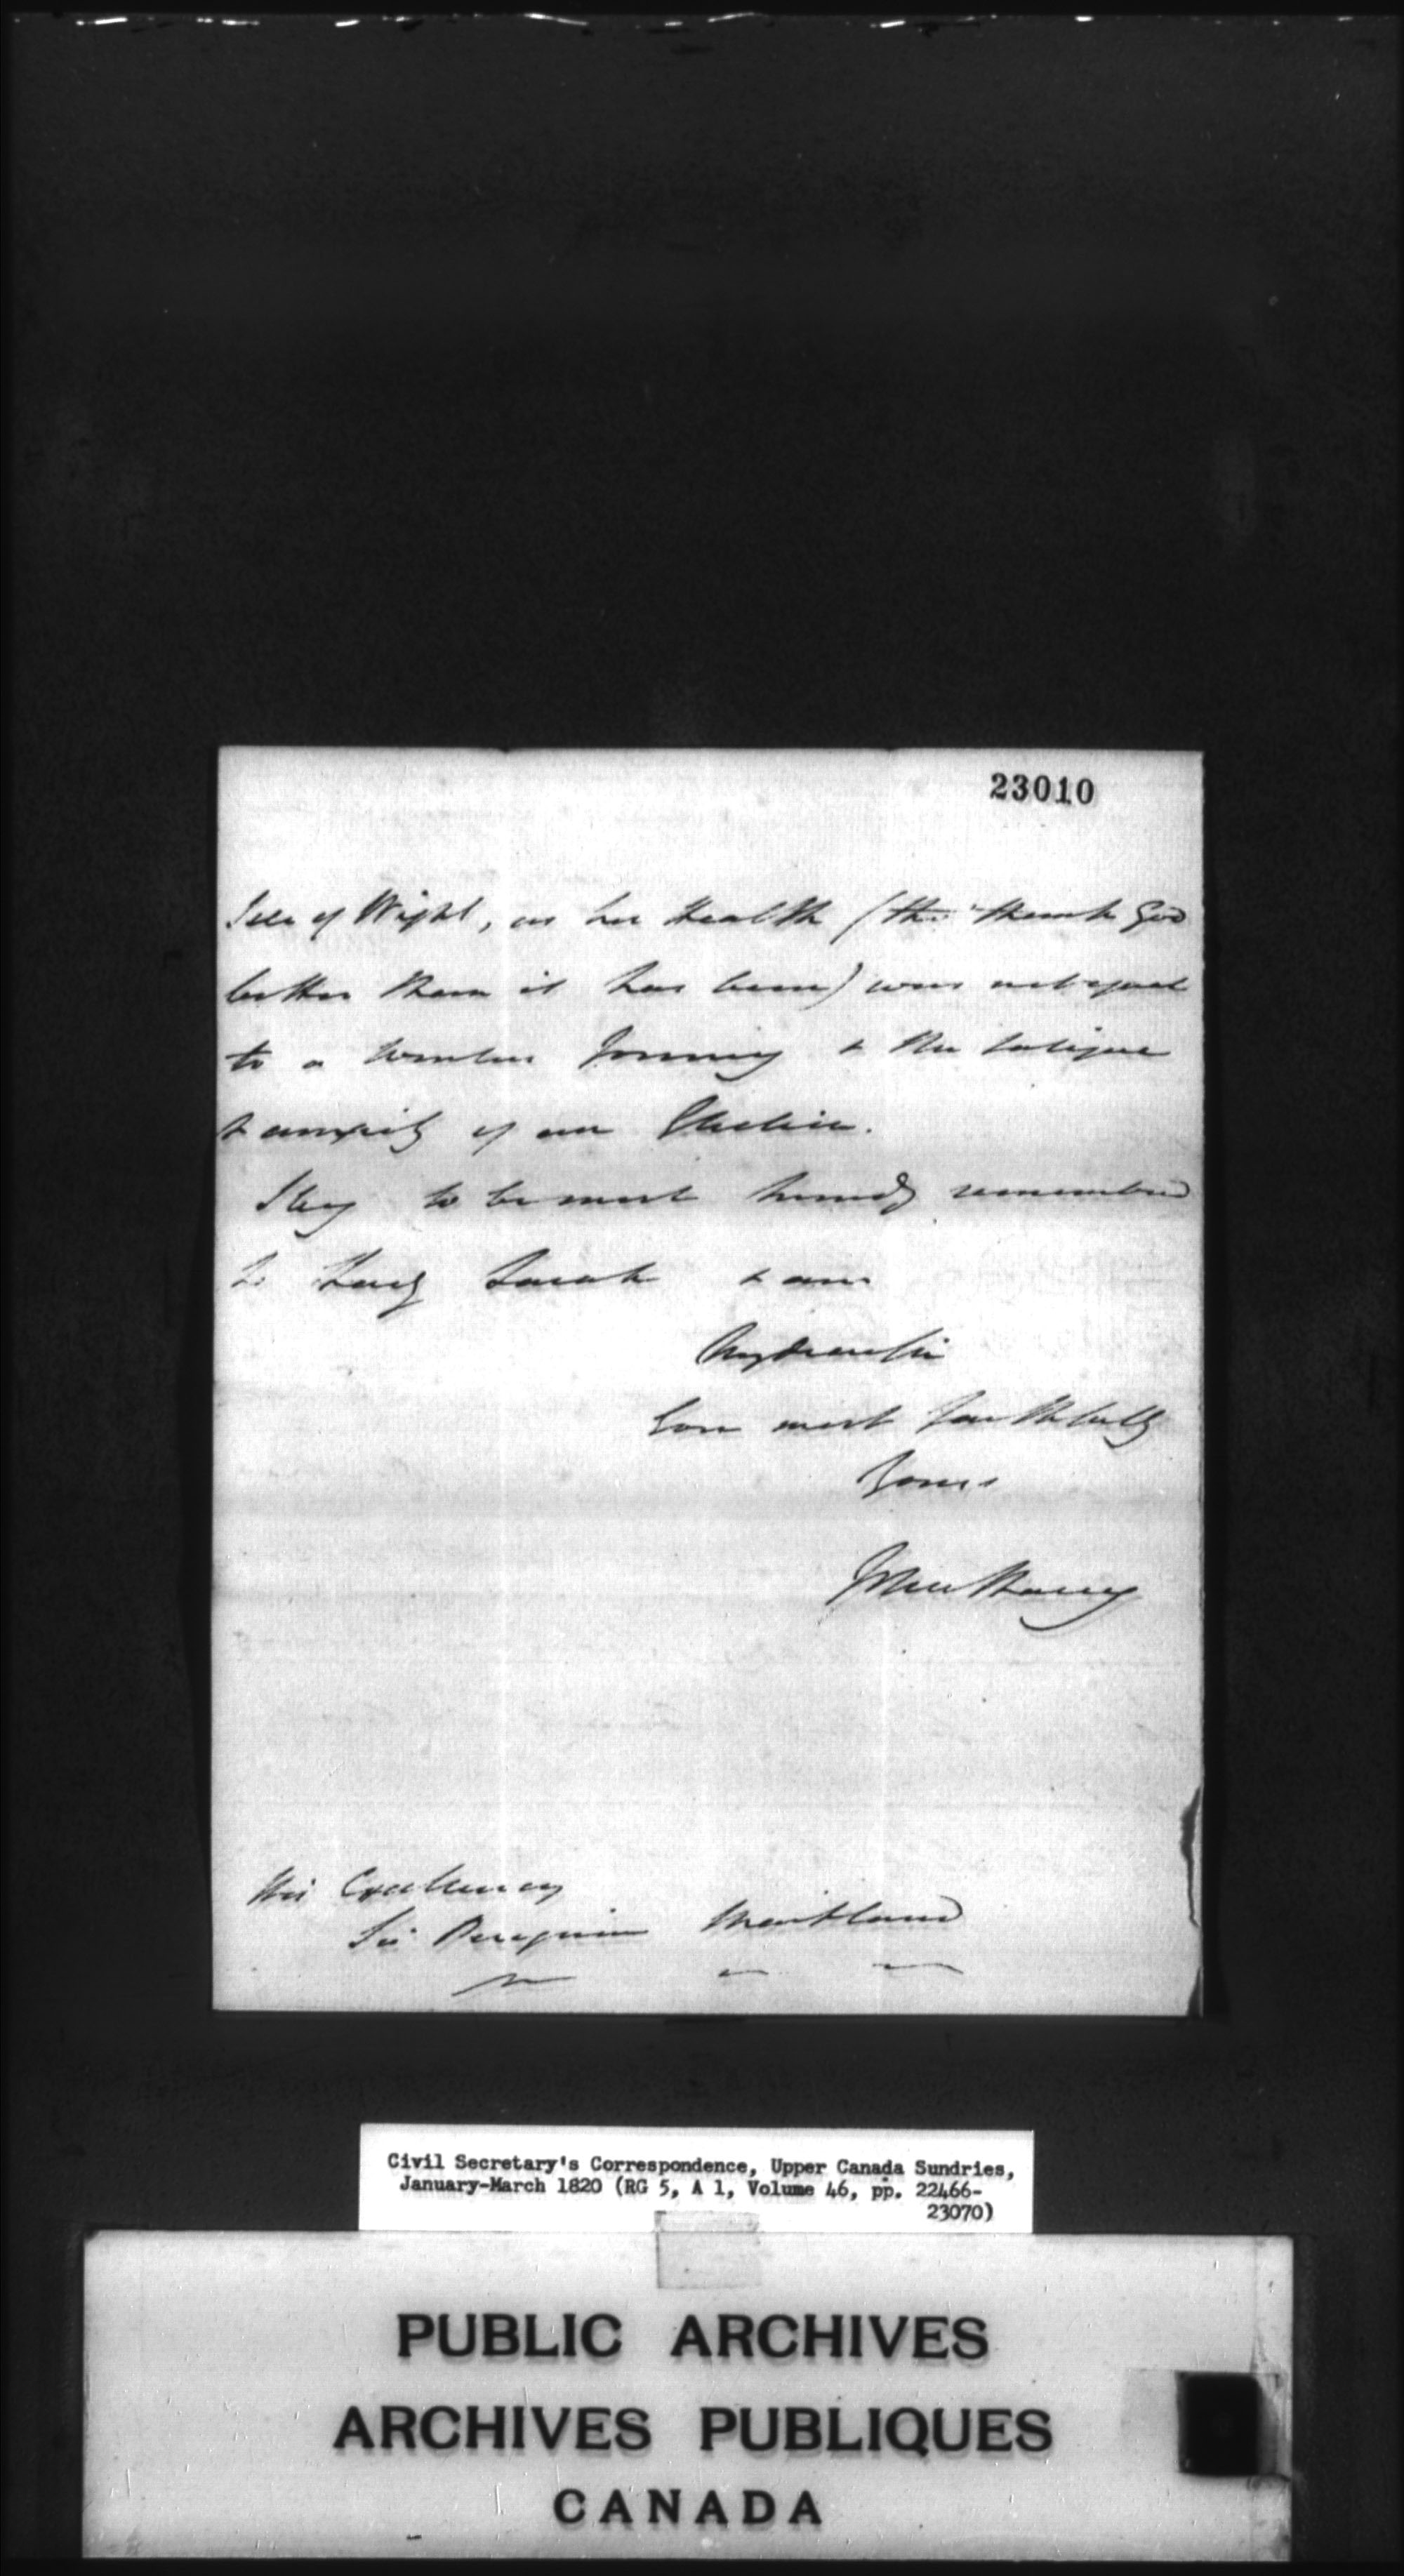 23010
Isle of Wight, as her Health (tho' thank God
better than it has been) was not equal
to a winter Journey & the fatigue
& anxiety of an Election.
I beg to be most kindly remembered
to Lady Sarah & am
My dear Sir
Ever most faithfully
Yours
John Harvey
His Excellency
Sir Peregrine Maitland
Civil Secretary's Correspondence, Upper Canada Sundries,
January-March 1820 (RG 5, A 1, Volume 46, pp. 22466-
23070)
PUBLIC ARCHIVES
ARCHIVES PUBLIQUES
CANADA